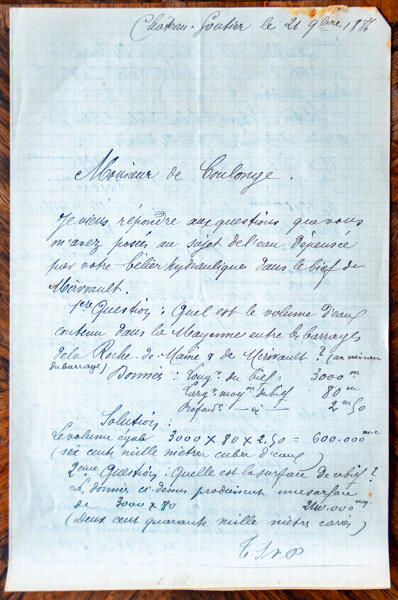 Château-Gontier le 21 9bre 1886
Monsieur de Coulonge.
Je viens répondre aux questions que vous
m'avez posées au sujet de l'eau dépensée
par votre bélier hydraulique dans le bief de
Mirvault.
1ère Question : Quel est le volume d'eau
contenu dans la Mayenne entre les barrages
de la Roche-de-Maine & de Mirvault ? (au niveau
du barrage)
Données : Longr du bief : 3000 m
Largr moyne du bief 80 m
Profondr — id — 2 m 50
Solution :
Le volume égale 3000 x 80 x 2.50 = 600.000 m.c
(six cent mille mètres cubes d'eau)
2ème Question : Quelle est la surface de ce bief ?
Les données ci-dessus produisent une surface
de 3000 x 80 240.000 mq
(Deux cent quarante mille mètres carrés)
T S V P